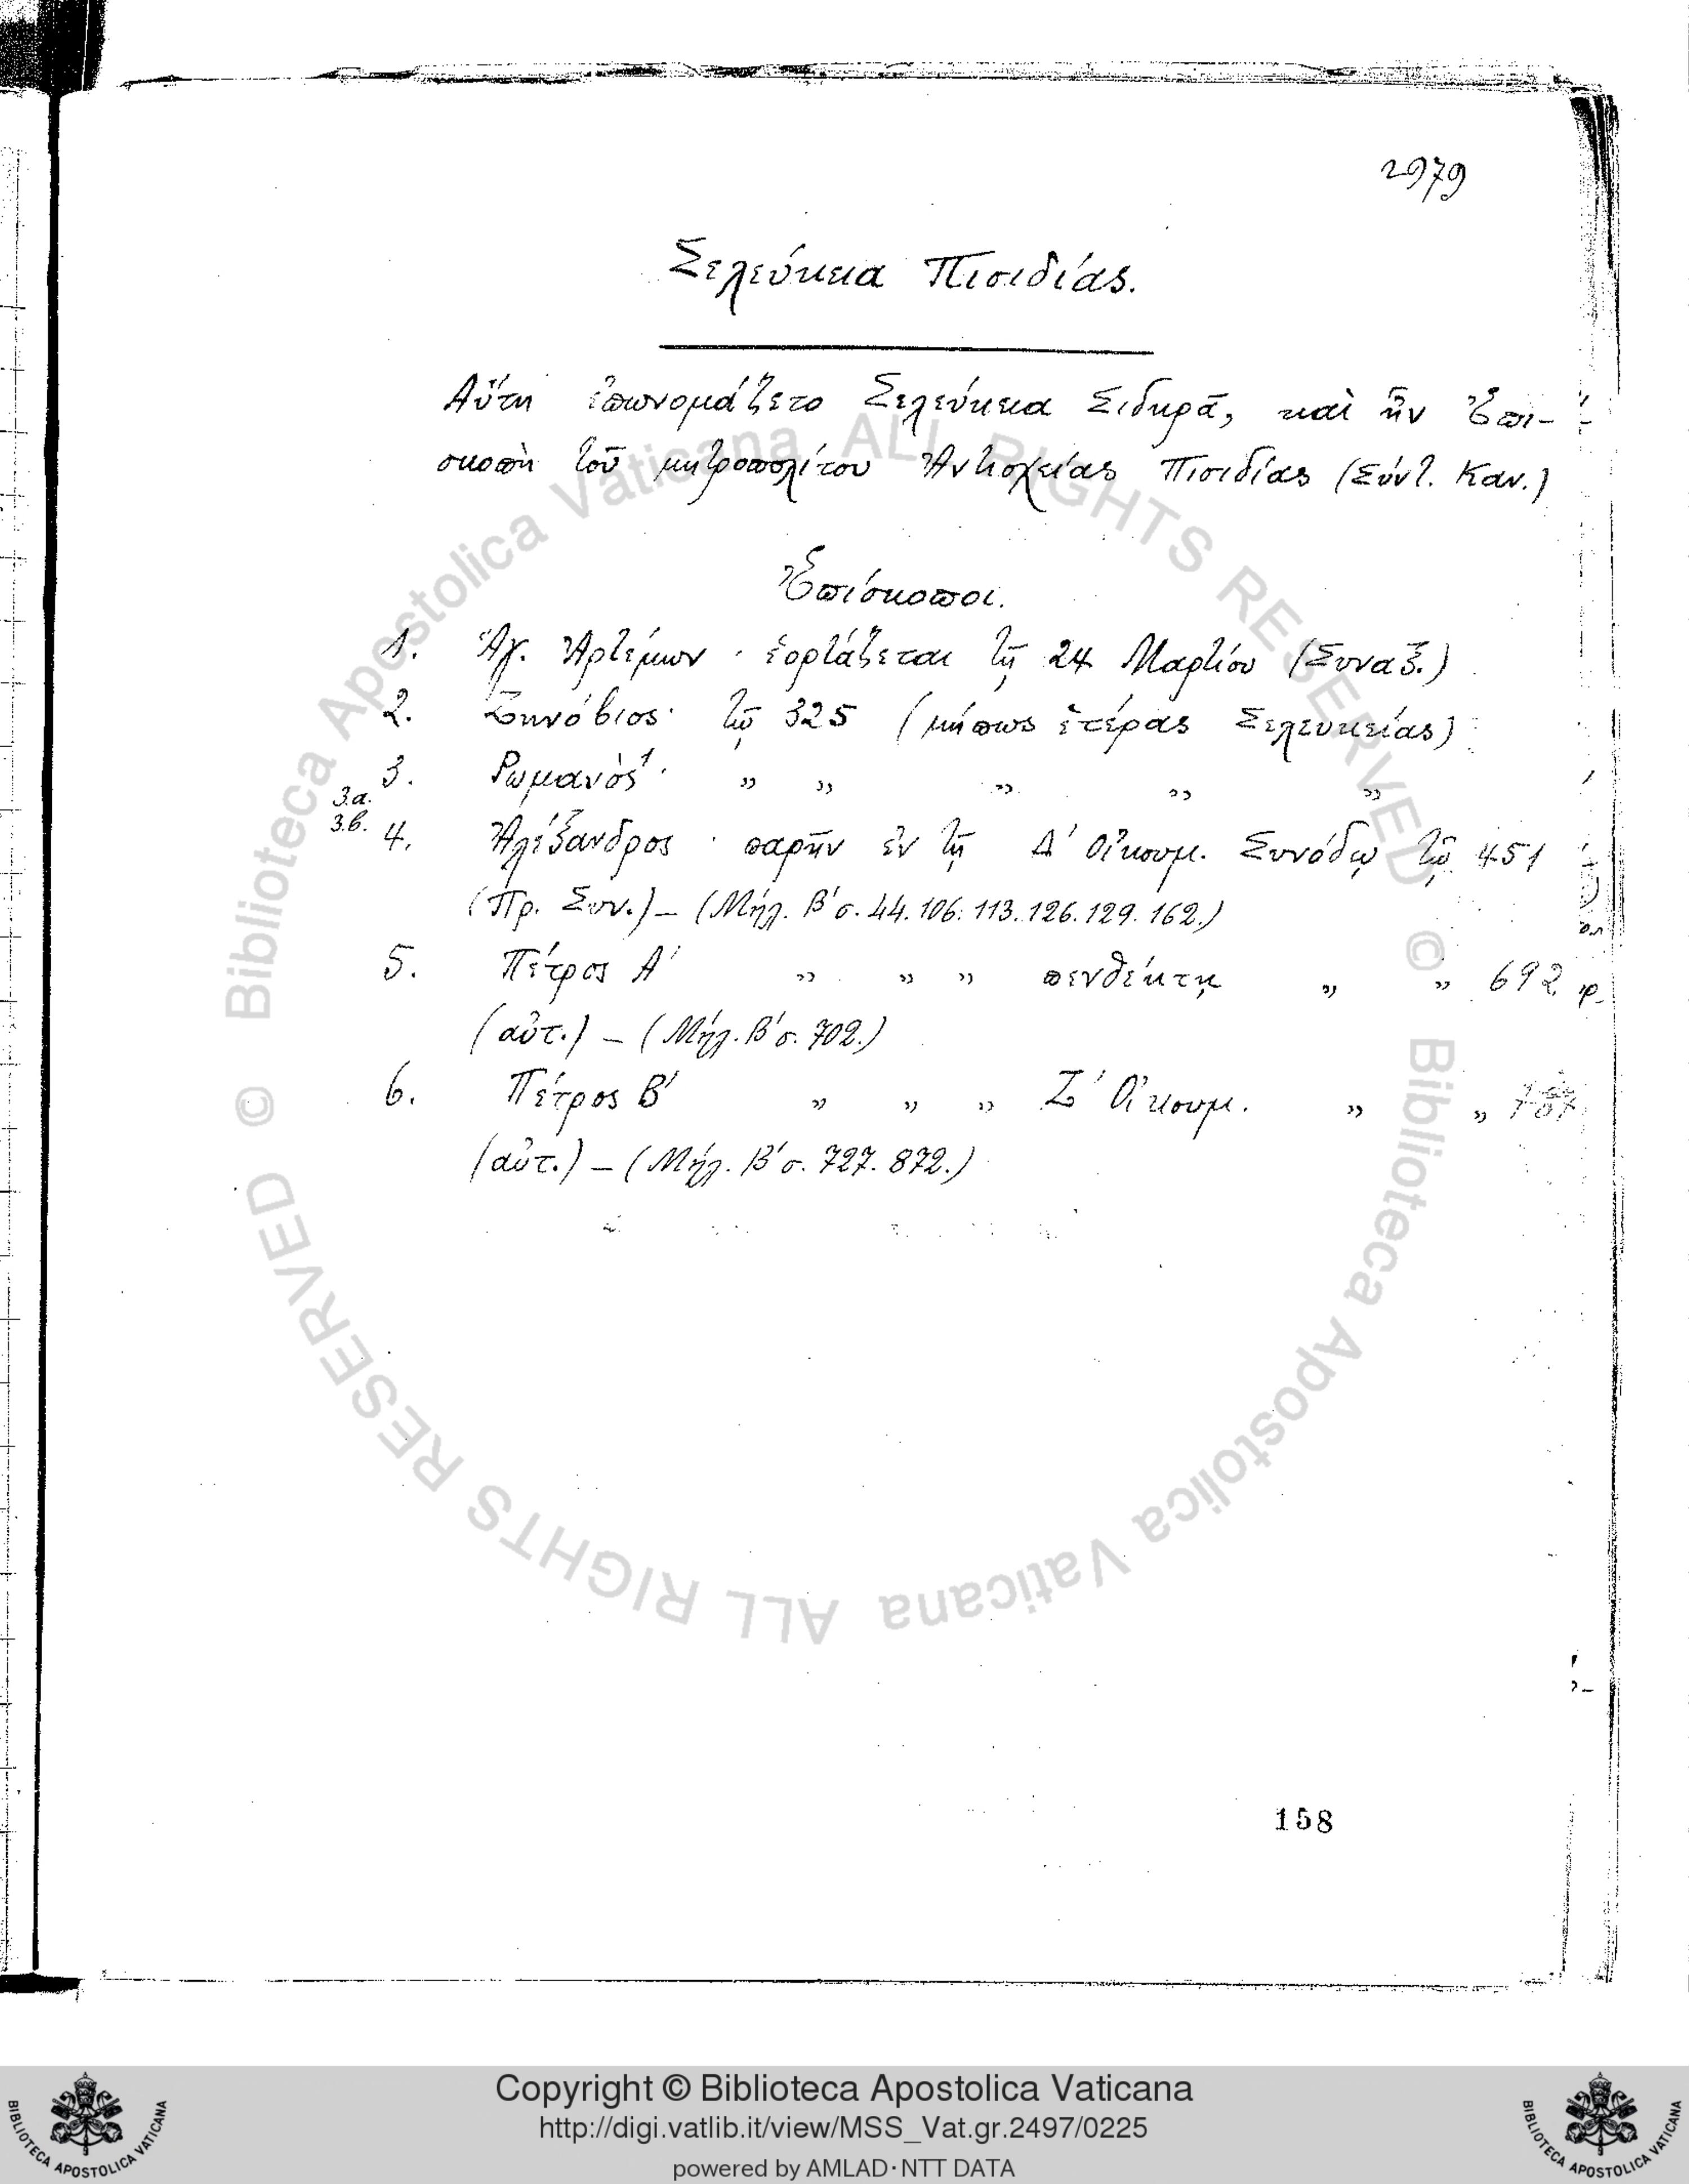 2979
Σελεύκεια Πισιδίας.
Αὕτη ἐπωνομάζετο Σελεύκεια Σιδηρᾶ, καὶ ἦν Ἐπι-
σκοπὴ τοῦ μητροπολίτου Ἀντιοχείας Πισιδίας (Σύντ. Καν.)
Ἐπίσκοποι.
1. Ἁγ. Ἀρτέμων · ἑορτάζεται τῇ 24 Μαρτίου (Συναξ.)
2. Ζηνόβιος· τῷ 325 (μήπως ἑτέρας Σελευκείας)
3. Ρωμανὸς · „ „ „ „ „
3.α.
3.β.
4. Ἀλέξανδρος · παρῆν ἐν τῇ Δ' Οἰκουμ. Συνόδῳ τῷ 451
(Πρ. Συν.) – (Μήλ. Β' σ. 44. 106. 113. 126. 129. 162.)
5. Πέτρος Α' „ „ „ πενθέκτῃ „ „ 692
(αὐτ.) – (Μήλ. Β' σ. 702.)
6. Πέτρος Β' „ „ „ Ζ' Οἰκουμ. „ „ 787
(αὐτ.) – (Μήλ. Β' σ. 727. 872.)
158
© Biblioteca Apostolica Vaticana ALL RIGHTS RESERVED
© Biblioteca Apostolica Vaticana ALL RIGHTS RESERVED
BIBLIOTECA APOSTOLICA VATICANA
Copyright © Biblioteca Apostolica Vaticana
http://digi.vatlib.it/view/MSS_Vat.gr.2497/0225
powered by AMLAD·NTT DATA
BIBLIOTECA APOSTOLICA VATICANA